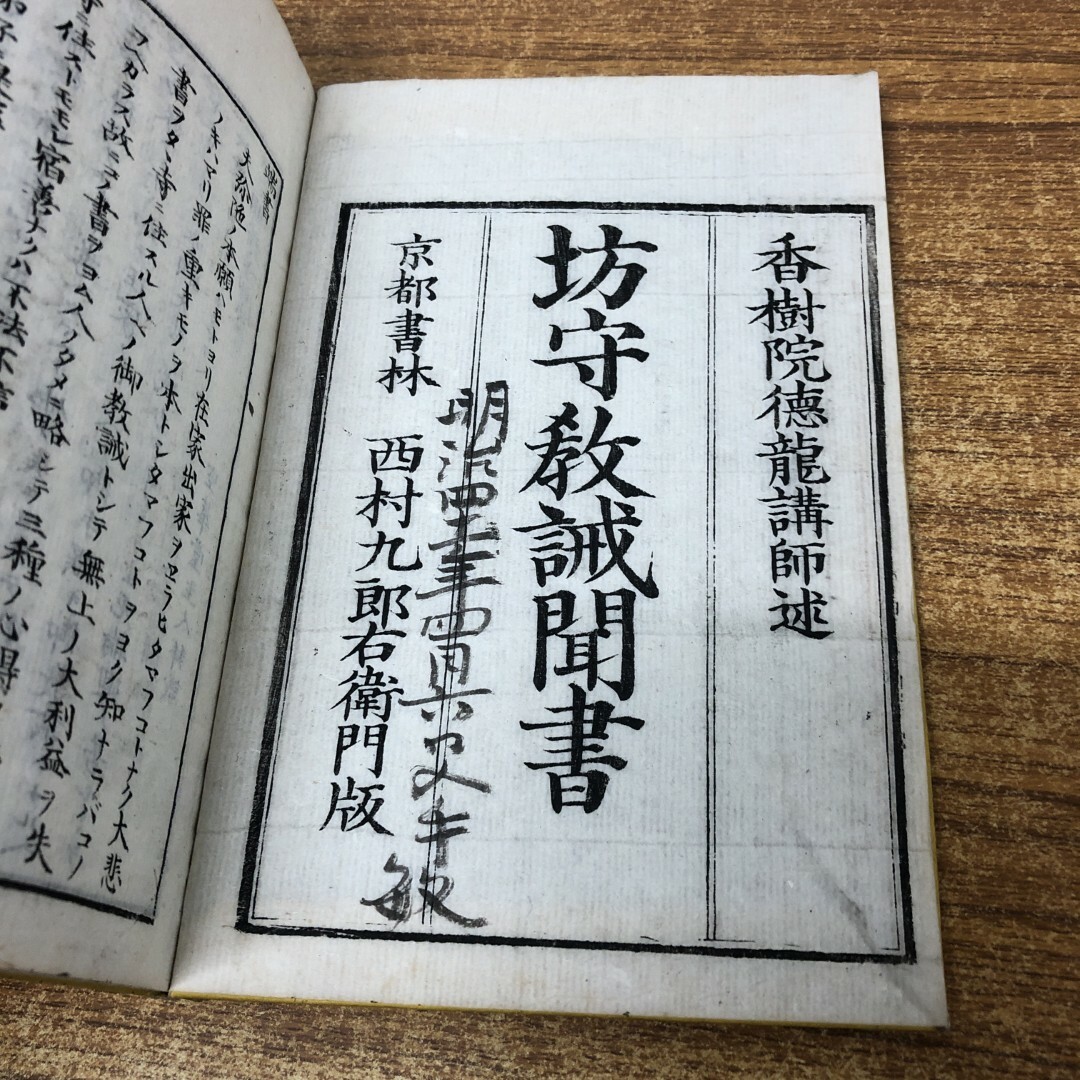 香樹院德龍講師述
坊守教誡聞書
明治四 四月六日 敏
京都書林 西村九郎右衛門版
夫弥陀ノ本願ハモトヨリ在家出家ヲヱラヒタマフコトナク大悲
ノキハマリ罪ノ重キモノヲ本トシタマフコトヲヨク知ナラバコノ
書ヲタヾ寺ニ住スル人々ノ御教誡トシテ無上ノ大利益ヲ失
フヘカラス故ニコノ書ヲヨム人ノタメニ略シテ三種ノ心得
ニ住 宿善ナクハ不法不信